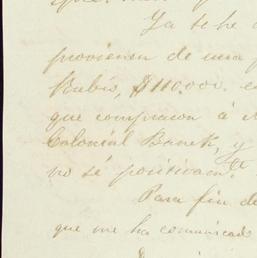 que
Ya te he
provienen de una
Rubio, $110.000.
que compraron á
Colonial Bank, y
no sé positivam.te
Para fin de
que me ha comunicado